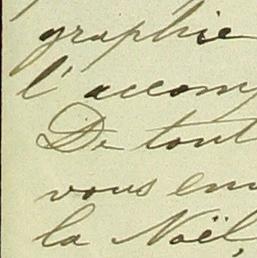 graphie
l'accom
De tout
vous en
la Noël,